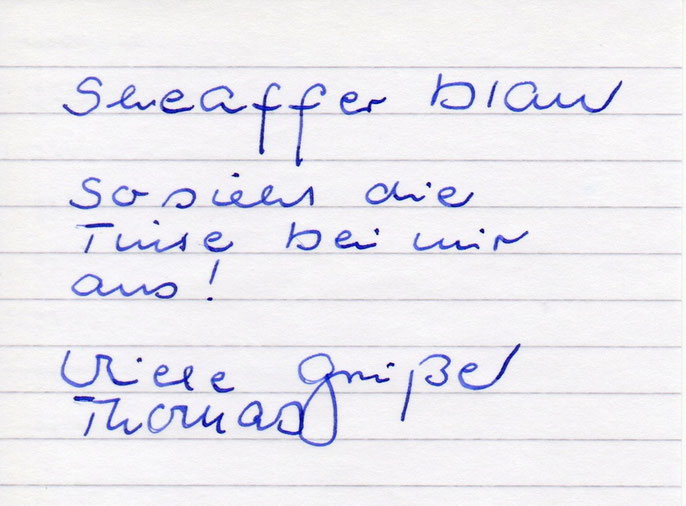 Sheaffer blau
So sieht die
Tinte bei mir
aus!
Viele Grüße
Thomas